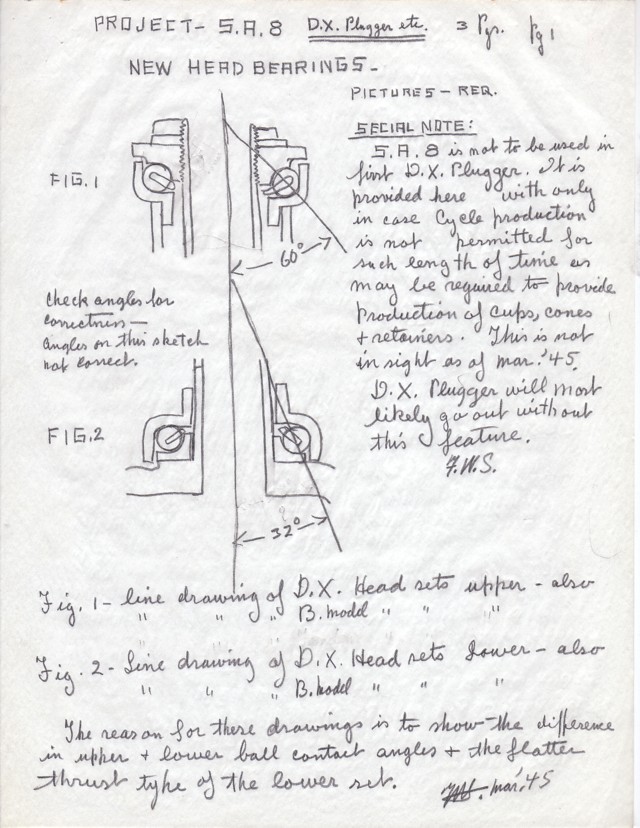 PROJECT- S.A.8 D.X. Plugger etc. 3 Pgs. Pg 1
NEW HEAD BEARINGS-
PICTURES - REQ.
SECIAL NOTE:
S.A.8 is not to be used in
first D.X. Plugger. It is
provided here with only
in case Cycle production
is not permitted for
such length of time as
may be required to provide
production of cups, cones
+ retainers. This is not
in sight as of mar. '45.
D.X. Plugger will most
likely go out without
this feature.
F.W.S.
FIG.1
60°
check angles for
correctness—
angles on this sketch
not correct.
FIG.2
32°
Fig. 1- line drawing of D.X. Head sets upper - also
" " " B. model " " "
Fig. 2- Line drawing of D.X. Head sets Lower - also
" " " B. model " " "
The reason for these drawings is to show the difference
in upper + lower ball contact angles + the flatter
thrust type of the lower set.
mar. '45